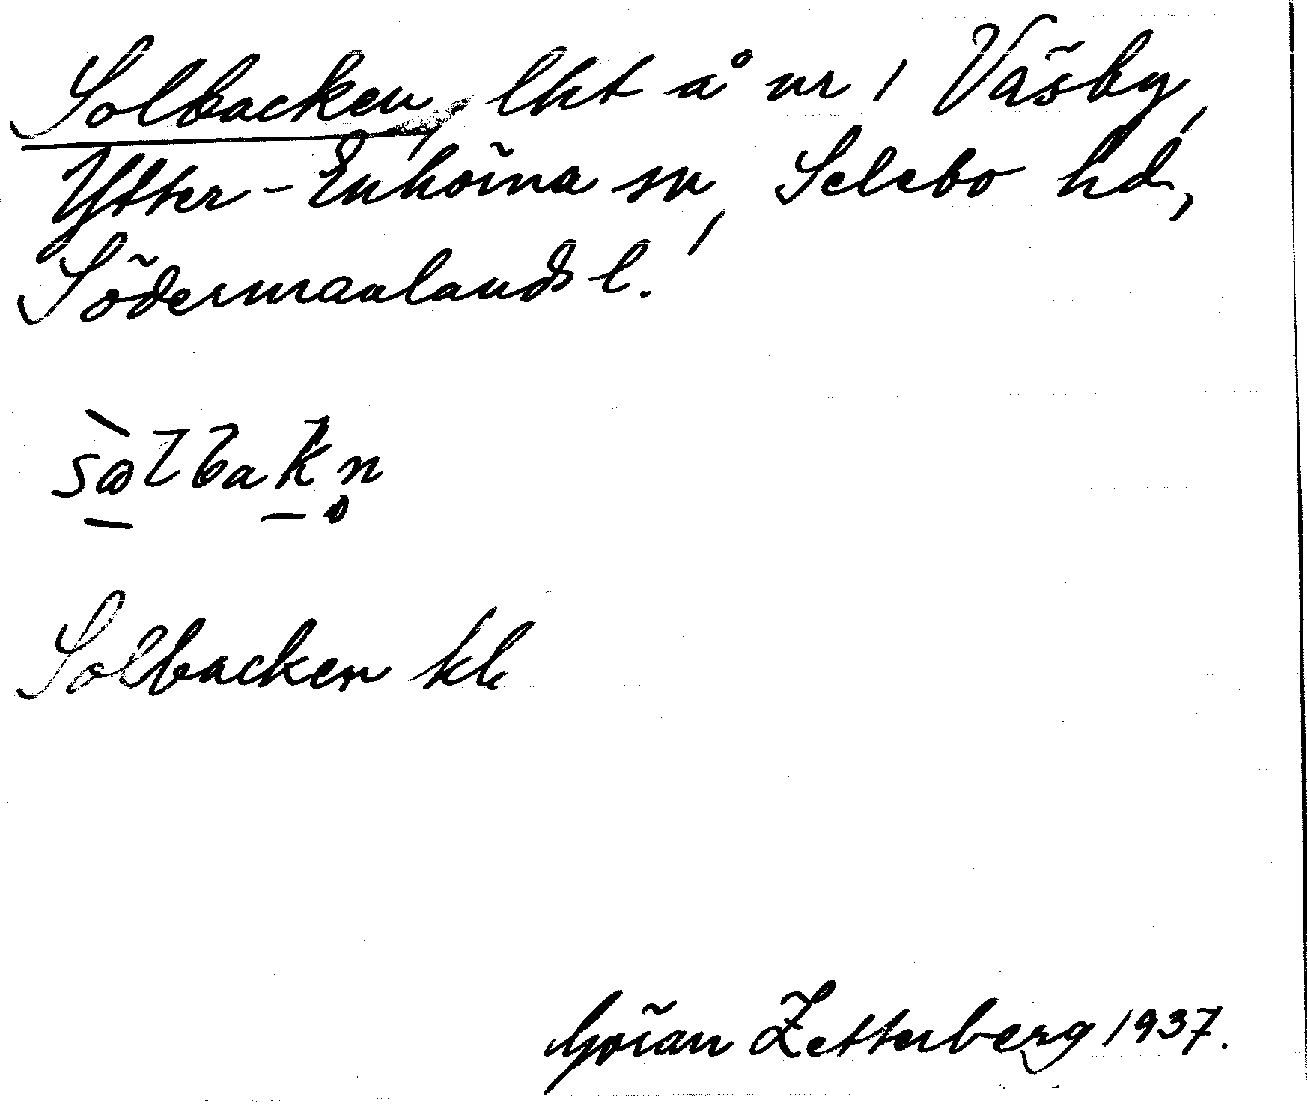 Solbacken, lht å nr 1 Väsby,
Ytter-Enhörna sn, Selebo hd,
Södermanlands l.
Solbacken kk
Göran Zetterberg 1937.